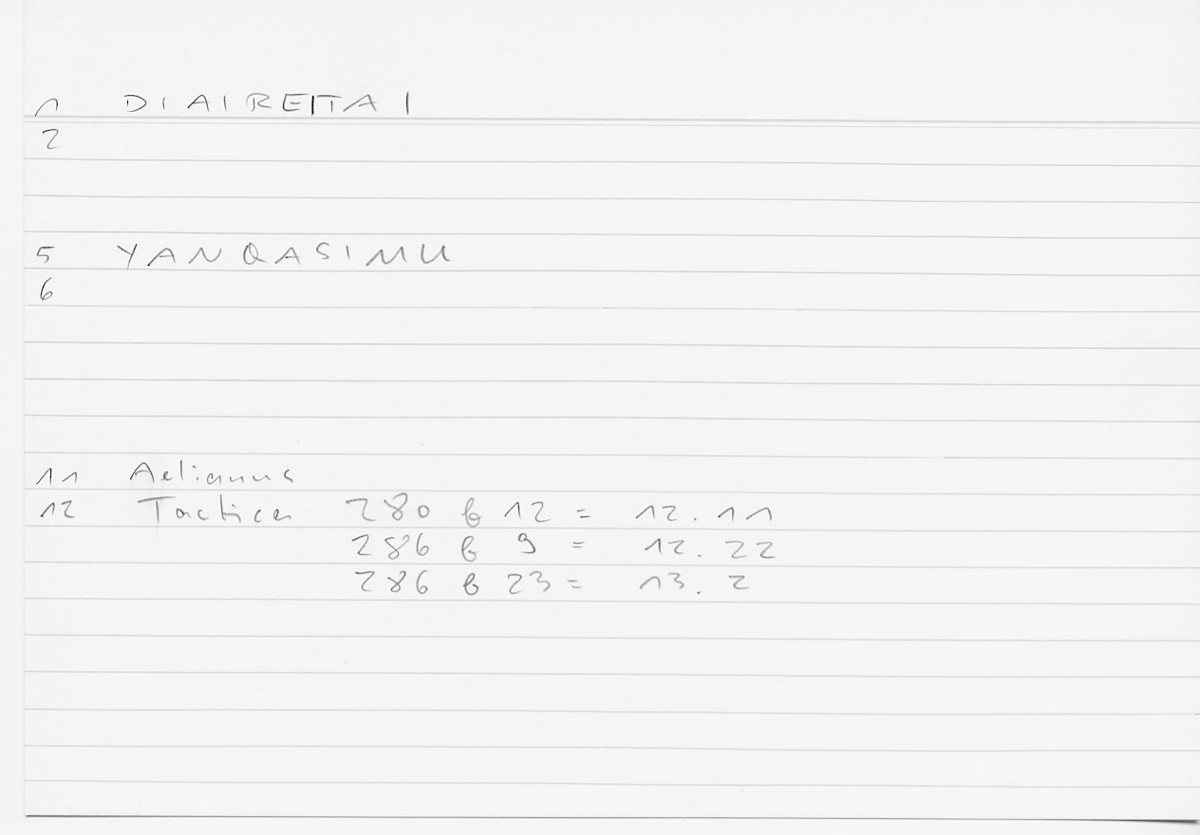 1 DIAIREITAI
2
5 YANQASIMU
6
11 Aelianus
12 Tactica 280 b 12 = 12.11
286 b 9 = 12.22
286 b 23 = 13.2